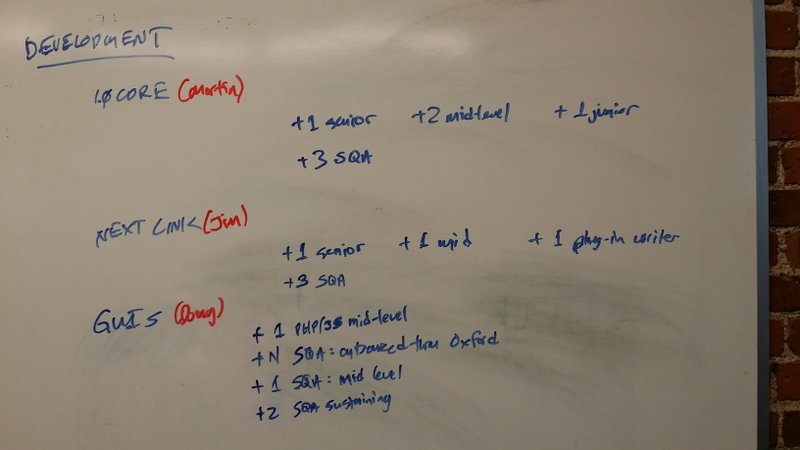 DEVELOPMENT
CORE (Martin)
+1 senior +2 mid-level +1 junior
+3 SQA
NEXT LINK (Jim)
+1 senior +1 mid +1 plug-in writer
+3 SQA
GUIs (Doug)
+1 PHP/JS mid-level
+N SQA: outsourced thru Oxford
+1 SQA: mid level
+2 SQA sustaining